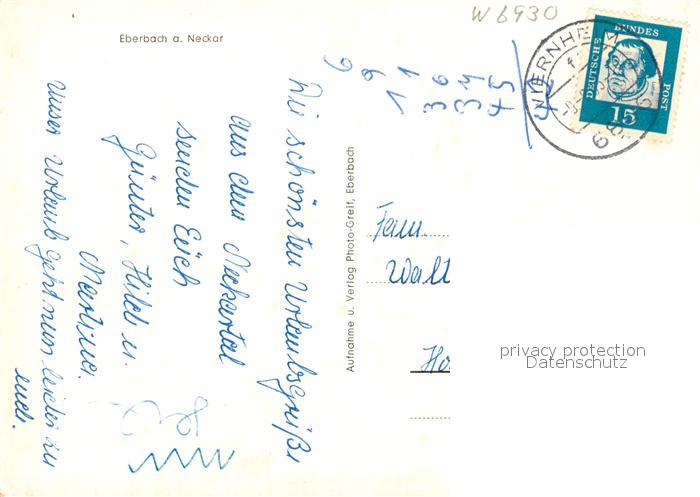 W 6930
Eberbach a. Neckar
DEUTSCHE BUNDES POST
15
VIERNHEIM
68
6
9
11
36
34
45
42
Die schönsten Urlaubsgrüße
aus dem Neckartal
senden Euch
Günter, Hilde u.
Martina.
Unser Urlaub geht nun leider zu
ende.
Aufnahme u. Verlag Photo-Greif, Eberbach
Fam.
Walt
Ho
privacy protection
Datenschutz